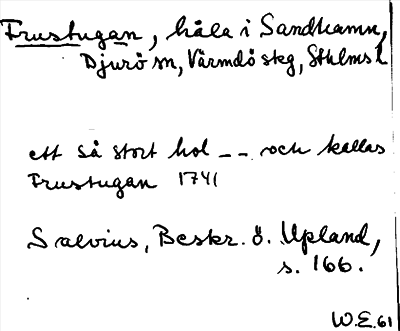 Frustugan, håla i Sandhamn,
Djurö sn, Värmdö skg, Sthlms l
ett så stort hol -- och kallas
Frustugan 1741
Salvius, Beskr. ö. Upland,
s. 166.
W.E. 61